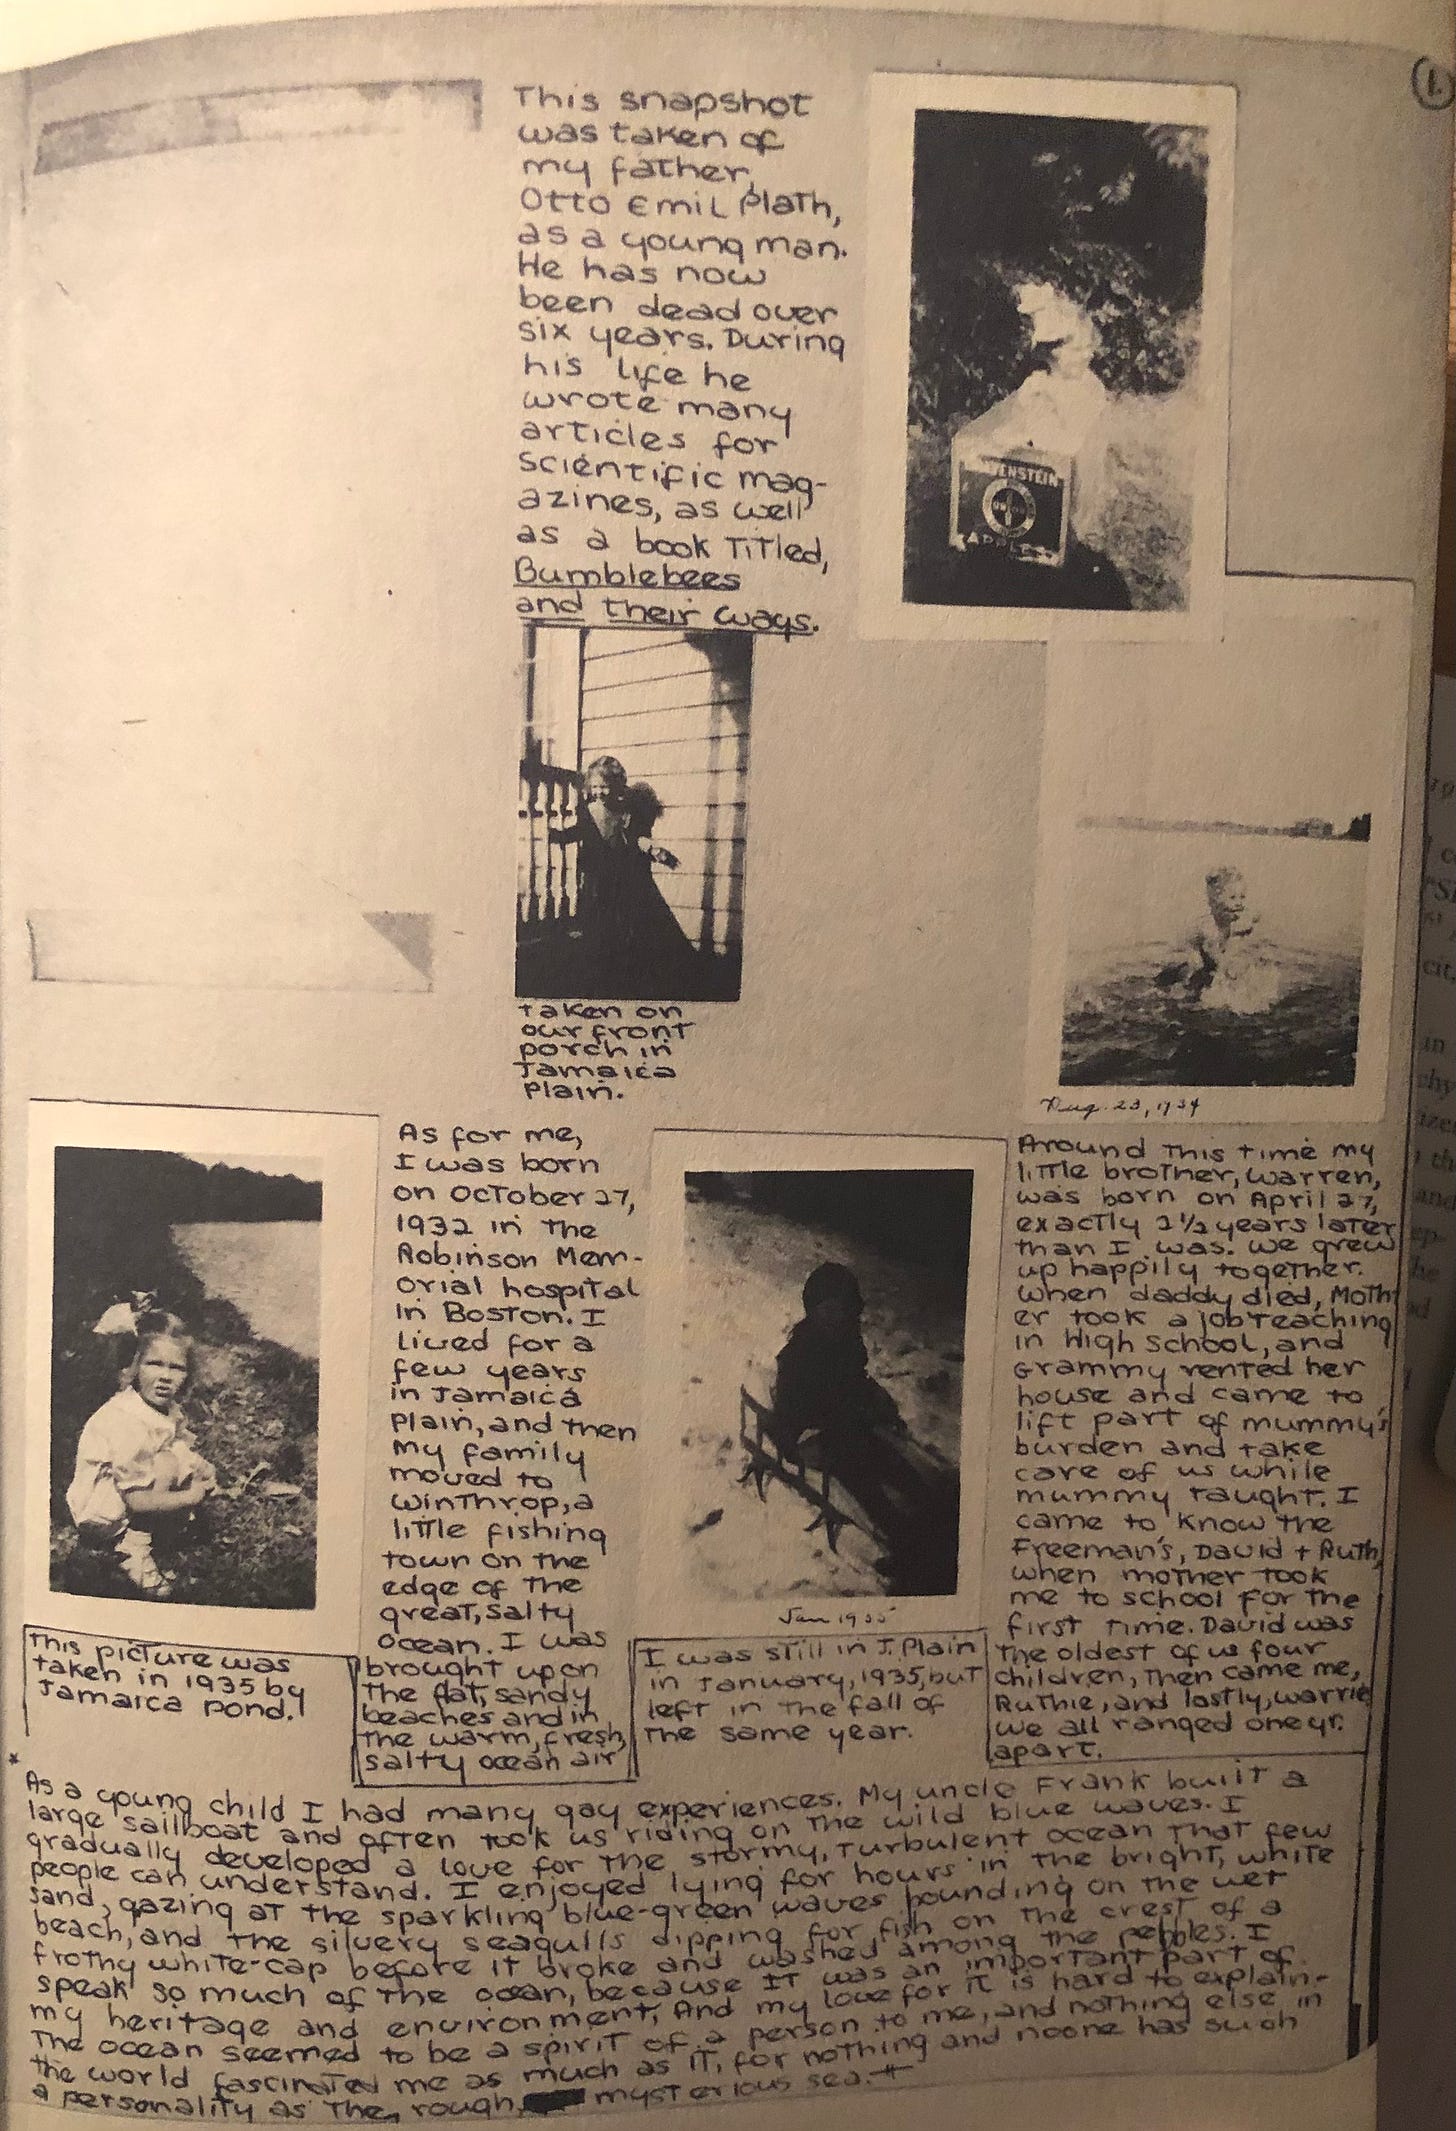 1.
This snapshot
was taken of
my father,
Otto Emil Plath,
as a young man.
He has now
been dead over
six years. During
his life he
wrote many
articles for
scientific mag-
azines, as well
as a book titled,
Bumblebees
and their ways.
VENSTEIN
APPLE
taken on
our front
porch in
Jamaica
Plain.
Aug. 23, 1934
As for me,
I was born
on October 27,
1932 in the
Robinson Mem-
orial hospital
in Boston. I
lived for a
few years
in Jamaica
Plain, and then
my family
moved to
Winthrop, a
little fishing
town on the
edge of the
great, salty
ocean. I was
brought up on
the flat, sandy
beaches and in
the warm, fresh,
salty ocean air
This picture was
taken in 1935 by
Jamaica Pond.
Jan 1935
I was still in J. Plain
in January, 1935, but
left in the fall of
the same year.
Around this time my
little brother, Warren,
was born on April 27,
exactly 2½ years later
than I was. We grew
up happily together.
When daddy died, Moth-
er took a job teaching
in High school, and
Grammy rented her
house and came to
lift part of mummy's
burden and take
care of us while
mummy taught. I
came to know the
Freeman's, David + Ruth,
when mother took
me to school for the
first time. David was
the oldest of us four
children, then came me,
Ruthie, and lastly, Warrie
We all ranged one yr.
apart.
*
As a young child I had many gay experiences. My uncle Frank built a
large sailboat and often took us riding on the wild blue waves. I
gradually developed a love for the stormy, turbulent ocean that few
people can understand. I enjoyed lying for hours in the bright, white
sand, gazing at the sparkling blue-green waves pounding on the wet
beach, and the silvery seagulls dipping for fish on the crest of a
frothy white-cap before it broke and washed among the pebbles. I
speak so much of the ocean, because it was an important part of
my heritage and environment, And my love for it is hard to explain-
The ocean seemed to be a spirit of a person to me, and nothing else in
the world fascinated me as much as it, for nothing and noone has such
a personality as the, rough, mysterious sea.*